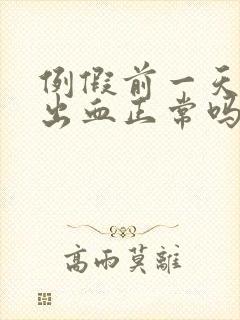 例假前一天
出血正常吗
高雨莫離